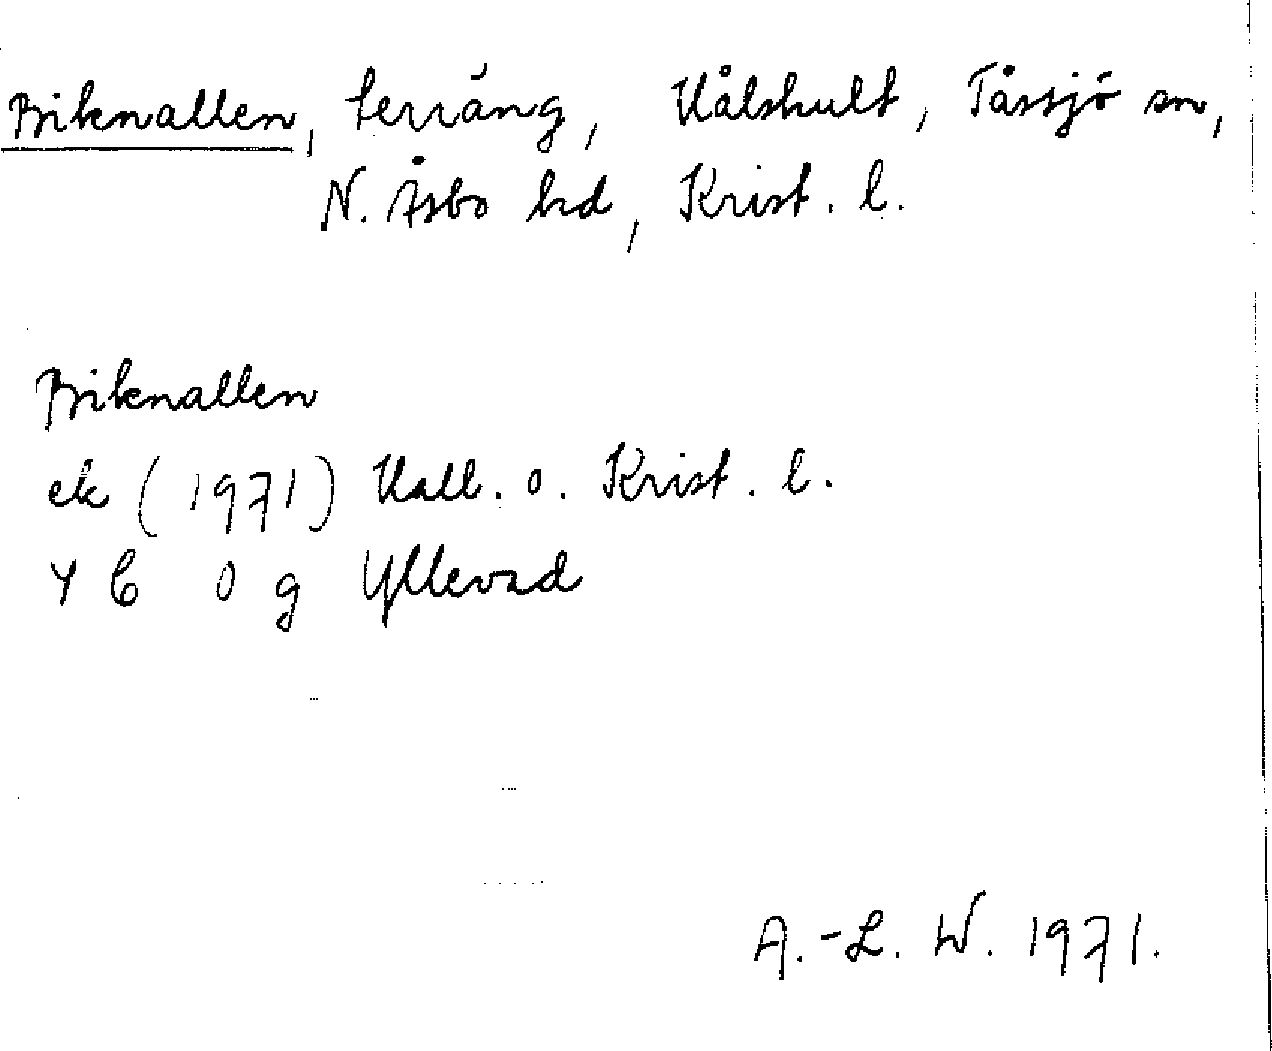 Briknallen, terräng, Hålshult, Tåssjö sn,
N. Åsbo hd, Krist. l.
Briknallen
ek (1971) Hall. o. Krist. l.
4 C 0 g Yllevad
A.-L. W. 1971.